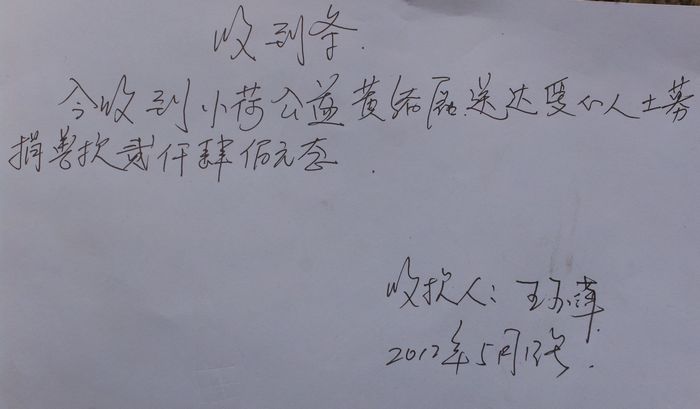 收到条
今收到小荷公益黄 送达爱心人士募
捐善款贰仟肆佰元整
收款人：王玉萍
2012年5月13号